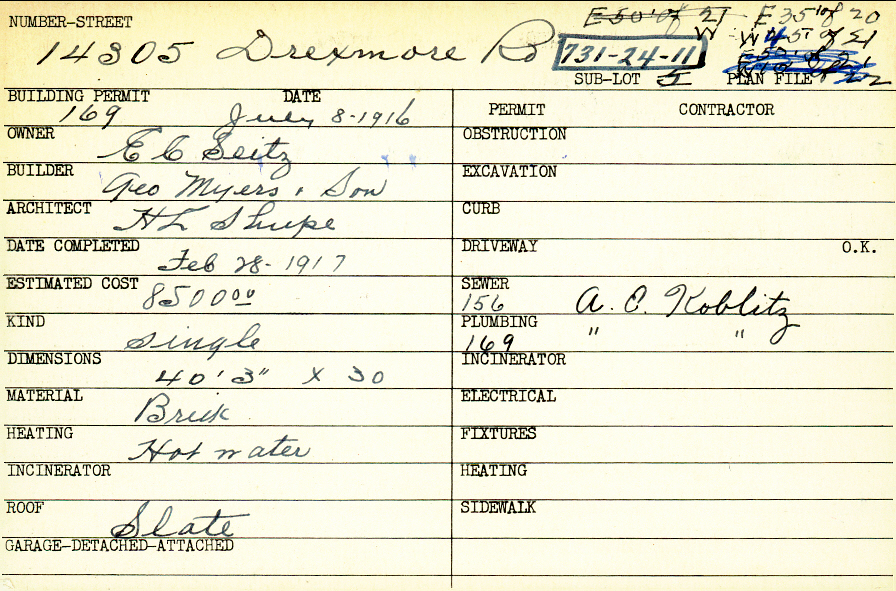 NUMBER-STREET E 50' of 21 E 35' of 20
14305 Drexmore Rd 731-24-11 W W 45' of 21
SUB-LOT 5 PLAN FILE 22
BUILDING PERMIT DATE PERMIT CONTRACTOR
169 July 8-1916
OWNER OBSTRUCTION
E C Seitz
BUILDER EXCAVATION
Geo Myers & Son
ARCHITECT CURB
H L Shupe
DATE COMPLETED DRIVEWAY O.K.
Feb 28-1917
ESTIMATED COST SEWER
8500 00 156 A. C. Koblitz
KIND PLUMBING " "
single 169
DIMENSIONS INCINERATOR
40'3" X 30
MATERIAL ELECTRICAL
Brick
HEATING FIXTURES
Hot water
INCINERATOR HEATING
ROOF SIDEWALK
Slate
GARAGE-DETACHED-ATTACHED